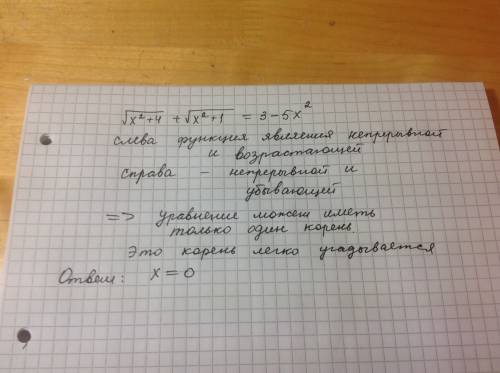 √x²+4 + √x²+1 = 3-5x²
слева функция является непрерывной
и возрастающей
справа - непрерывной и
убывающей
=> уравнение может иметь
только один корень.
Это корень легко угадывается
Ответ: x=0